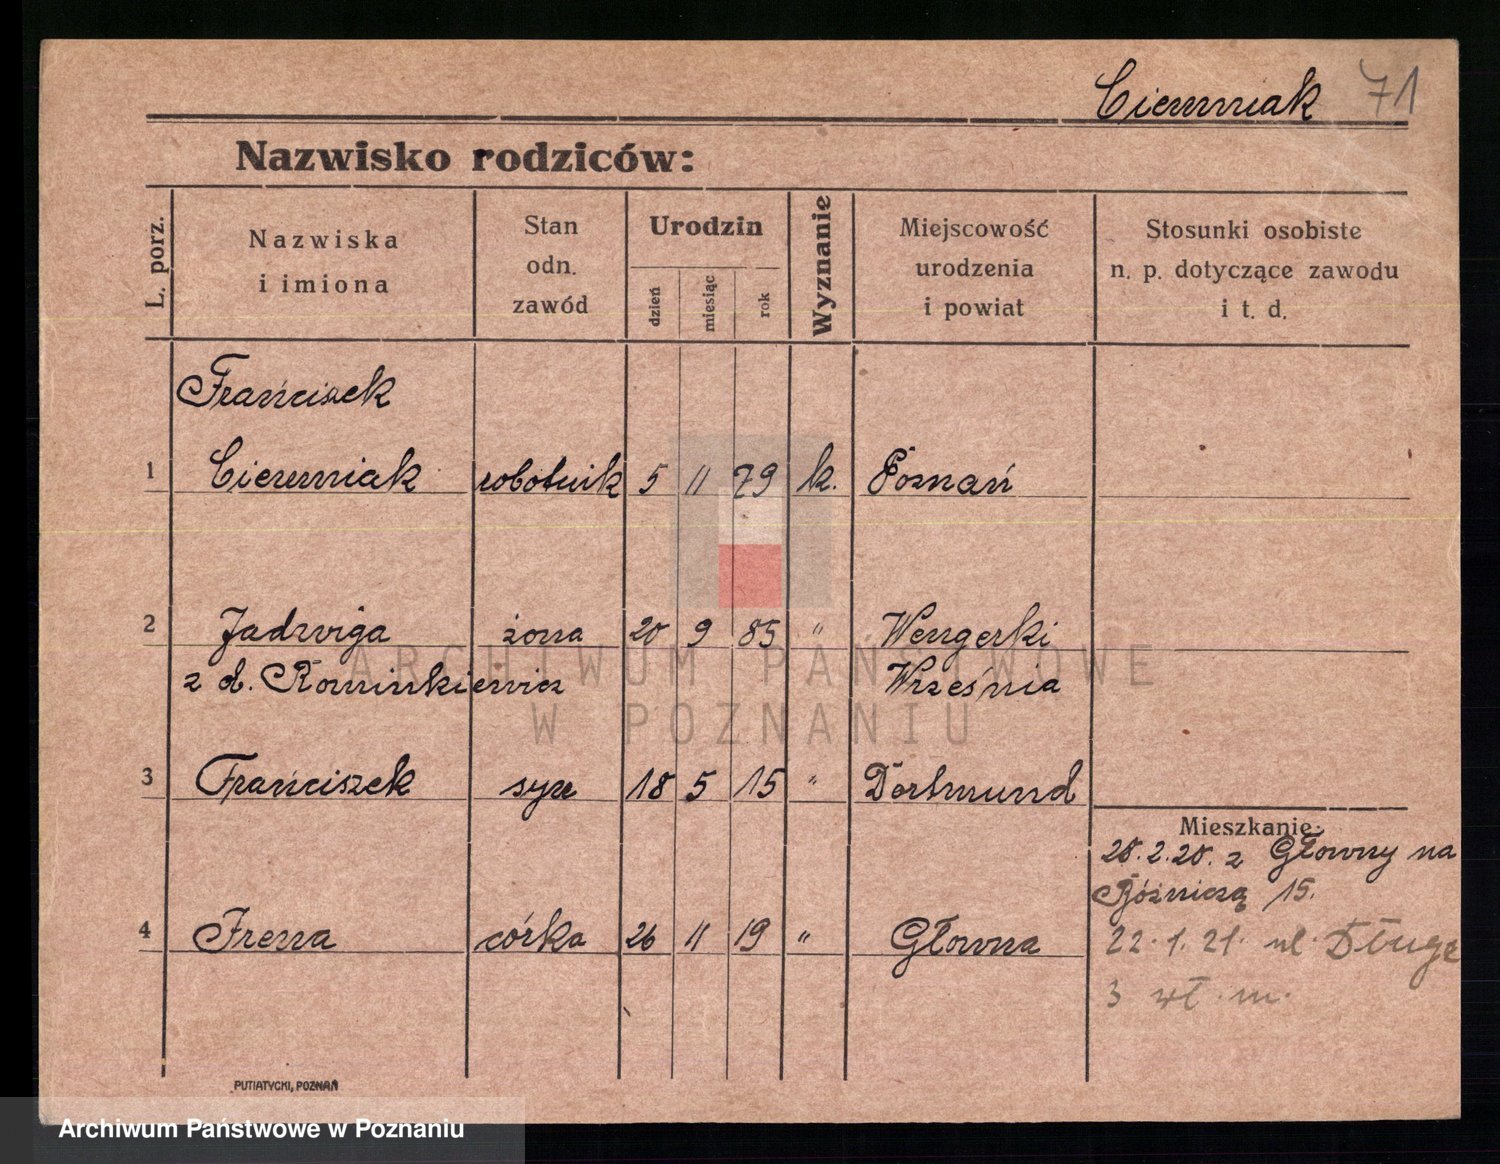 Cierniak 71
Nazwisko rodziców:
L. porz.
Nazwiska
i imiona
Stan
odn.
zawód
Urodzin
dzień
miesiąc
rok
Wyznanie
Miejscowość
urodzenia
i powiat
Stosunki osobiste
n. p. dotyczące zawodu
i t. d.
Franciszek
1 Cierniak robotnik 5 11 79 k. Poznań
2 Jadwiga żona 20 9 85 " Wengerki
z d. Rominkiewicz Września
3 Franciszek syn 18 5 15 " Dortmund
Mieszkanie:
28.2.20. z Główny na
15.
4 Irena córka 26 11 19 " Główna
22.1.21. ul. Długa
3 wł. m.
PUTIATYCKI, POZNAŃ
ARCHIWUM PAŃSTWOWE
W POZNANIU
Archiwum Państwowe w Poznaniu